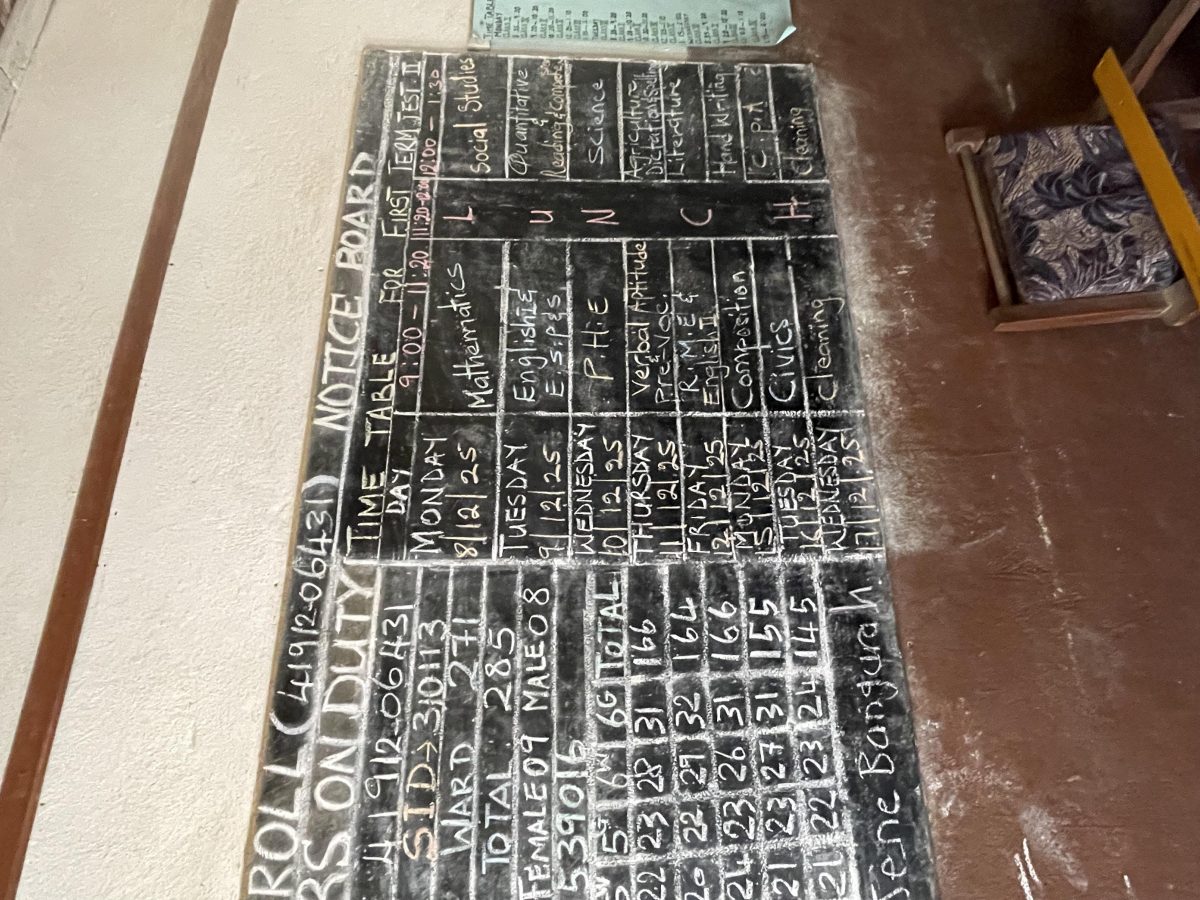 ROLL (41912-06431) NOTICE BOARD
RS ON DUTY
41912-06431
SID→310113
WARD 271
TOTAL 285
FEMALE 09 MALE 08
539016
W 5G 6W 6G TOTAL
22 23 28 31 166
20 22 29 32 164
24 23 26 31 166
21 23 27 31 155
21 22 23 24 145
Jene Bangurah.
TIME TABLE FOR FIRST TERM TEST II
DAY 9:00 - 11:20 11:20-12:00 12:00 - 1:30
MONDAY
8/12/25 Mathematics L Social Studies
TUESDAY English I & Quantitative
9/12/25 E.S.P & S U Reading & Compre
WEDNESDAY
10/12/25 P.H.E N Science
THURSDAY Verbal Aptitude Agriculture
11/12/25 Pre-Voc. & Dictation & Spelling
FRIDAY R.M.E & C Literature
12/12/25 English II
MONDAY
15/12/25 Composition Hand Writing
TUESDAY
16/12/25 Civics H C.P.A
WEDNESDAY
17/12/25 Cleaning Cleaning
TIME TABLE
MONDAY